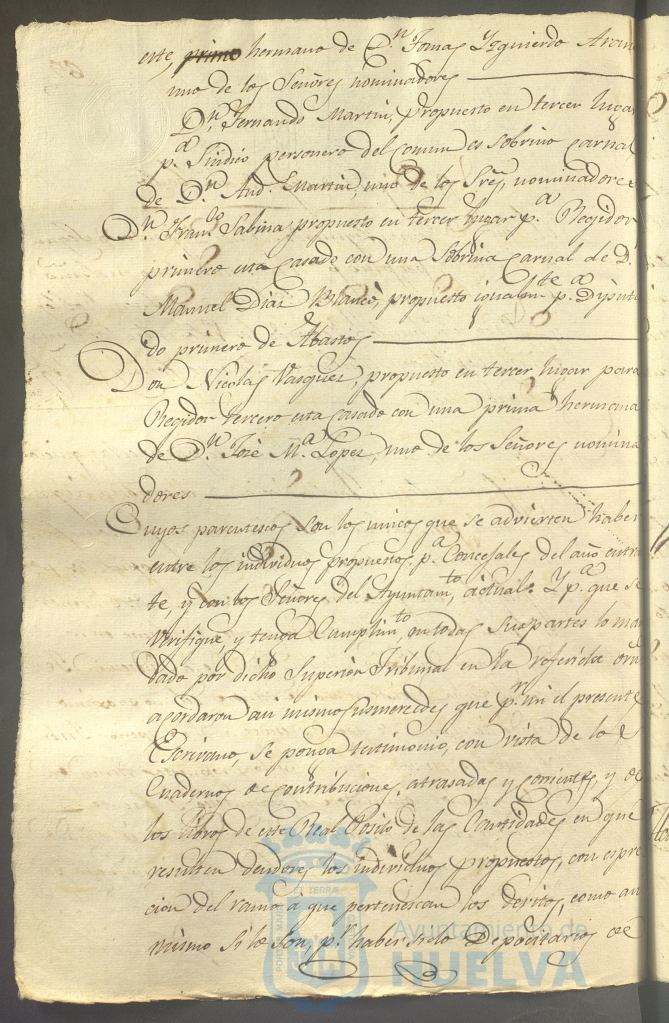 este, primo hermano de Dn. Tomas Yzquierdo Aran
uno de los Señores nominadores
Dn. Fernando Martin, propuesto en tercer lugar
pa. Sindico personero del Comun es Sobrino carnal
de Dn. And. Martin, uno de los Sres. nominadores
Dn. Franco. Sabina, propuesto en tercer lugar pa. Regidor
primero esta casado con una Sobrina carnal de D.
Manuel Diaz Blanco, propuesto igualmte. pa. Diputa
do primero de Abastos
Don Nicolas Vasquez, propuesto en tercer lugar para
Regidor tercero esta casado con una prima hermana
de Dn. José Ma. Lopez, uno de los Señores nomina
dores
Cuyos parentescos son los unicos que se advierten haber
entre los individuos propuestos pa. Concejales del año entran
te, y con los Señores del Ayuntamto. actual. Y pa. que se
verifique y tenga Cumplimto. en todas sus partes lo man
dado por dicho Superior Tribunal en la referida orn
acordaron asi mismo susmercedes que pr. mi el presente
Escrivano, se ponga testimonio, con vista de los
Cuadernos de contribuciones, atrasadas y corrientes, y de
los libros de este Real Posito de las Cantidades en que
resulten deudores los individuos propuestos, con espre
cion del ramo á que pertenescan los devitos, como asi
mismo si lo son, pr. haber sido Depocitarios de
PORTUS MARIS ET TERRAE CUSTODIA
Ayuntamiento de
HUELVA